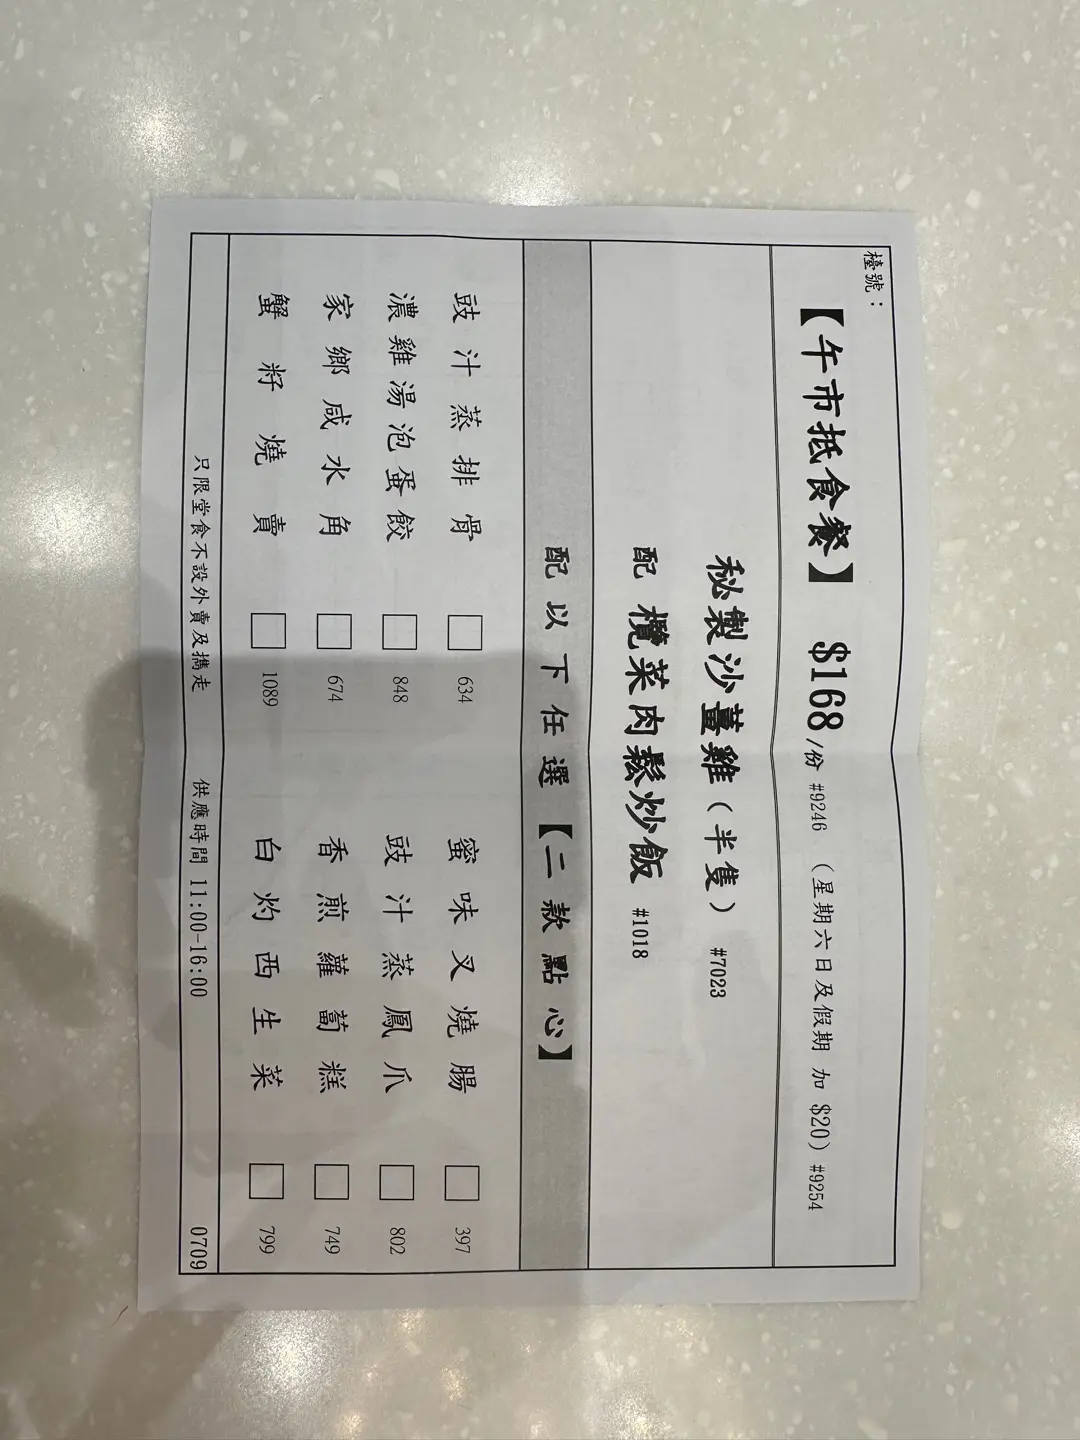 檯號：
【午市抵食餐】 $168/份 #9246 （星期六日及假期 加 $20）#9254
秘製沙薑雞（半隻） #7023
配 欖菜肉鬆炒飯 #1018
配以下任選【二款點心】
豉汁蒸排骨 □ 634 蜜味叉燒腸 □ 397
濃雞湯泡蛋餃 □ 848 豉汁蒸鳳爪 □ 802
家鄉咸水角 □ 674 香煎蘿蔔糕 □ 749
蟹籽燒賣 □ 1089 白灼西生菜 □ 799
只限堂食不設外賣及攜走 供應時間 11:00-16:00 0709